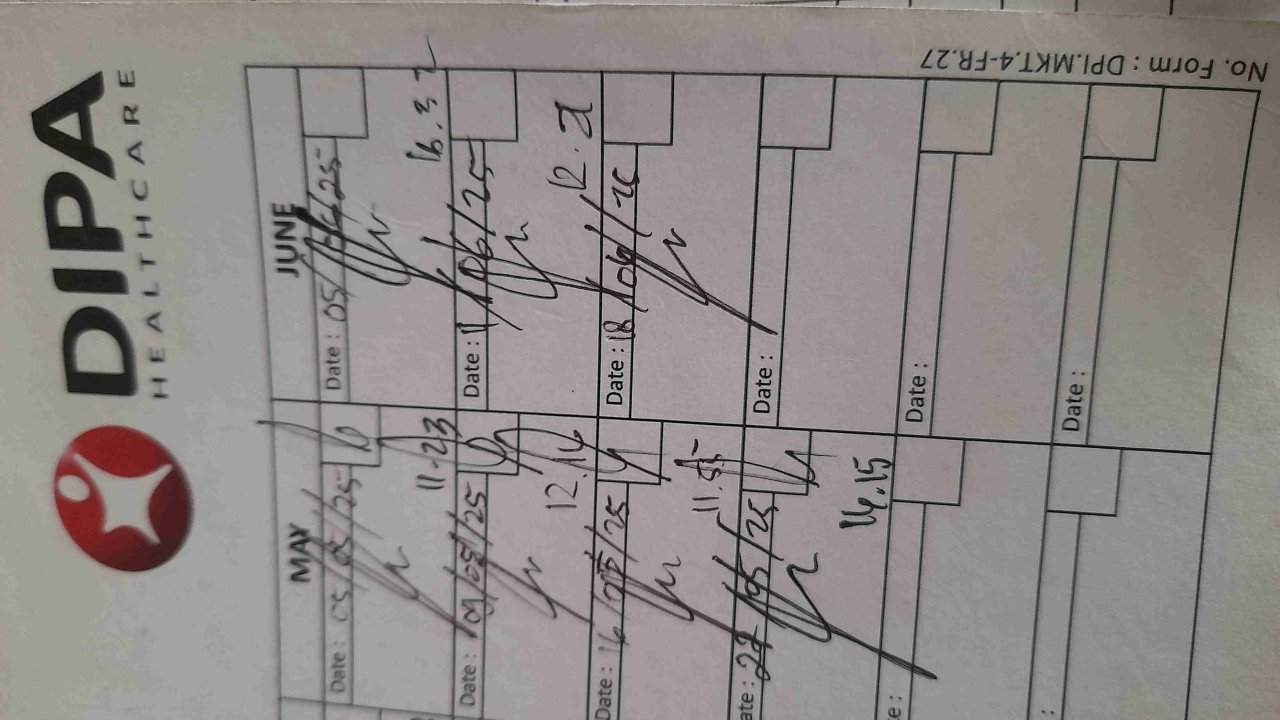 DIPA
HEALTHCARE
No. Form : DPI.MKT.4-FR.27
MAY
JUNE
Date : 05/05/25
Date : 05/06/25
11.23
Date : 09/05/25
Date : 11/06/25
12.14
Date : 16/05/25
Date : 18/06/25
11.55
ate : 27/05/25
Date :
14.15
te :
Date :
:
Date :